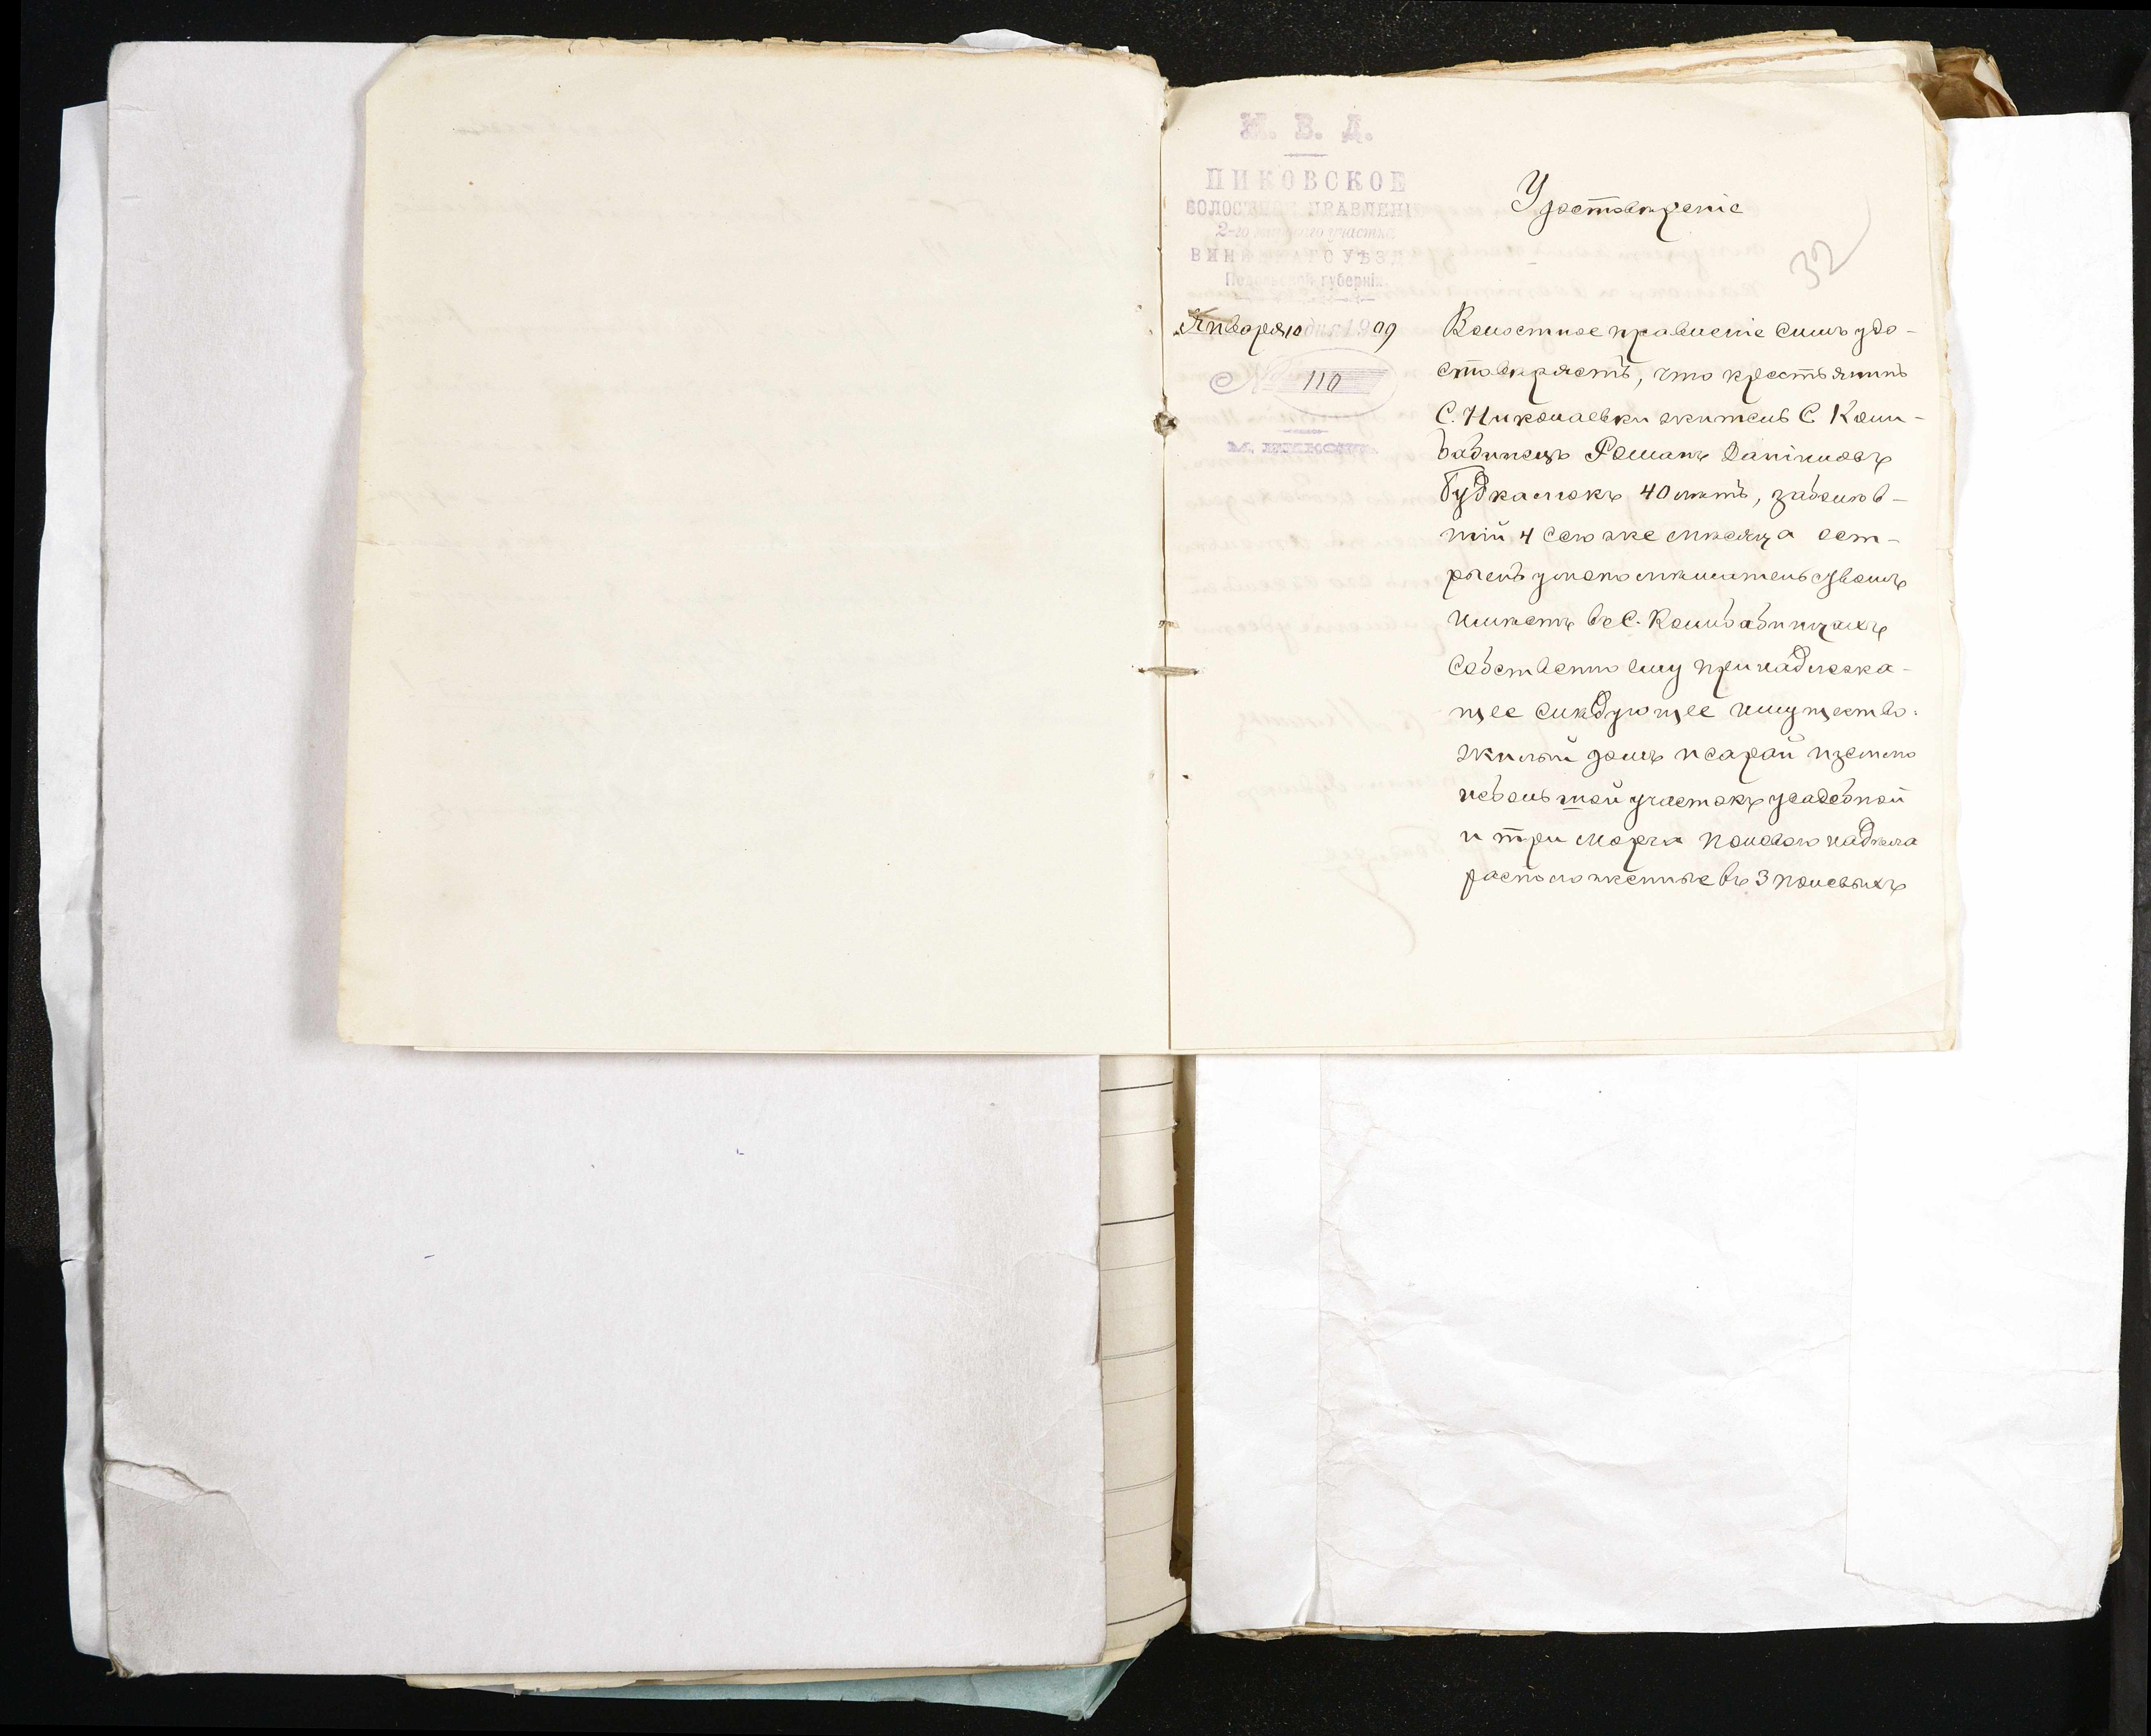 М. В. Д.
ПИКОВСКОЕ
ВОЛОСТНОЕ ПРАВЛЕНІЕ
2-го участка
ВИННИЦКАГО УѢЗДА
Подольской губерніи
Января 10 дня 1909
№ 110
М. ПИКОВЪ
Удостовѣреніе
32
Волостное правленіе симъ удо-
стовѣряетъ, что крестьянинъ
С. Николаевки житель С. Коли-
бабинецъ Романъ Даніиловъ
40 лѣтъ, заболѣв-
шій 4 сего же мѣсяца ост-
рымъ умопомѣшательствомъ
имѣетъ въ С. Колибабинцахъ
собственно ему принадлежа-
щее слѣдующее имущество:
жилой домъ и сарай
небольшой участокъ усадебной
и три морга полевого надѣла
расположенные въ 3 полевыхъ